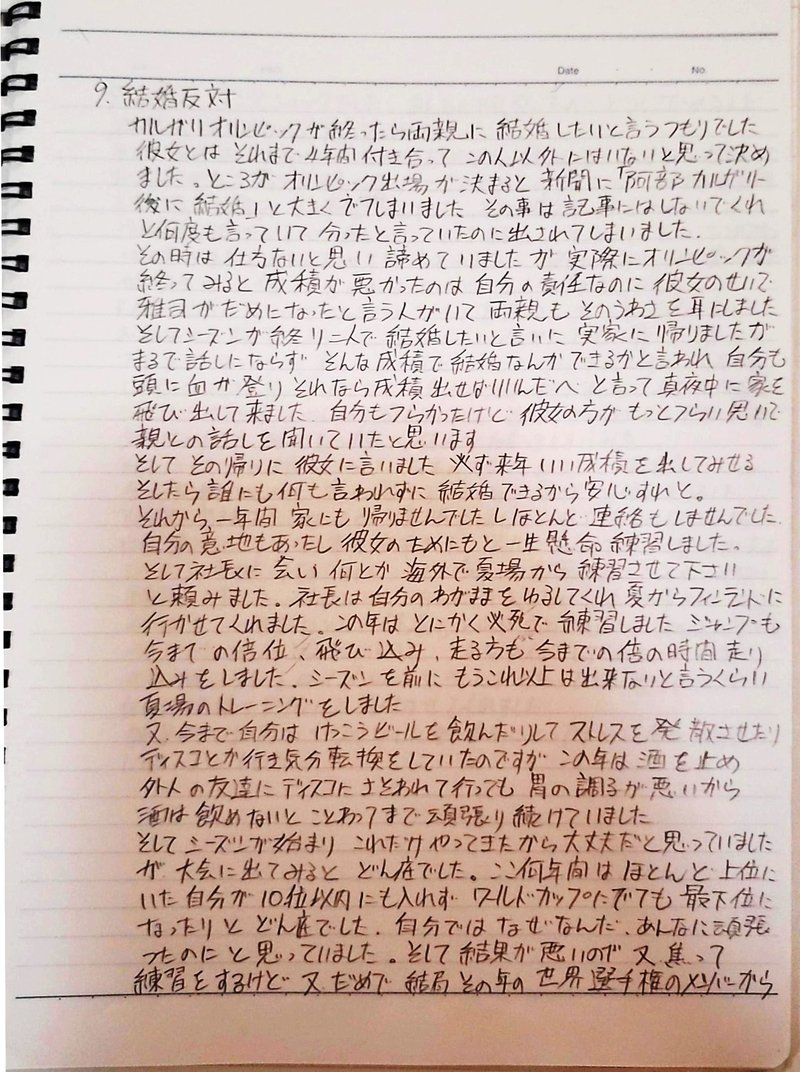 Date ・ ・ No.
9. 結婚反対
カルガリオリンピックが終ったら両親に結婚したいと言うつもりでした
彼女とはそれまで4年間付き合ってこの人以外にはいないと思って決め
ました。ところがオリンピック出場が決まると新聞に「阿部カルガリー
後に結婚」と大きくでてしまいました その事は記事にはしないでくれ
と何度も言っていて 分ったと言っていたのに出されてしまいました.
その時は仕方ないと思い諦めていましたが 実際にオリンピックが
終ってみると成積が悪かったのは自分の責任なのに彼女のせいで
雅司がだめになったと言う人がいて 両親もそのうわさを耳にしました
そしてシーズンが終り二人で結婚したいと言いに実家に帰りましたが
まるで話しにならず そんな成積で結婚なんかできるかと言われ 自分も
頭に血が登り それなら成積出せばいいんだべ と言って真夜中に家を
飛び出して来ました 自分もつらかったけど 彼女の方が もっとつらい思いで
親との話しを聞いていたと思います
そして その帰りに彼女に言いました 必ず来年いい成積を出してみせる
そしたら誰にも何も言われずに結婚できるから安心すれと。
それから、一年間 家にも帰りませんでたしほとんど連絡もしませんでした.
自分の意地もあったし彼女のためにもと一生懸命練習しました。
そして社長に会い何とか海外で夏場から練習させて下さい
と頼みました。社長は自分のわがままをゆるしてくれ夏からフィンランドに
行かせてくれました。この年はとにかく必死で練習しました ジャンプも
今までの倍位、飛び込み、走る方も今までの倍の時間走り
込みをしました。シーズンを前にもうこれ以上は出来ないと言うくらい
夏場のトレーニングをしました
又、今まで自分はけっこうビールを飲んだりしてストレスを発散させたり
ディスコとか行き気分転換をしていたのですが この年は酒を止め
外人の友達にディスコにさそわれて行っても胃の調子が悪いから
酒は飲めないとことわってまで頑張り続けていました
そしてシーズンが始まり これだけやってきたから大丈夫だと思っていました
が 大会に出てみるとどん底でした。ここ何年間はほとんど上位に
いた自分が10位以内にも入れず ワールドカップにでても最下位に
なったりとどん底でした。自分ではなぜなんだ、あんなに頑張
ったのにと思っていました。そして結果が悪いので又、焦って
練習をするけど又だめで 結局その年の世界選手権のメンバーから